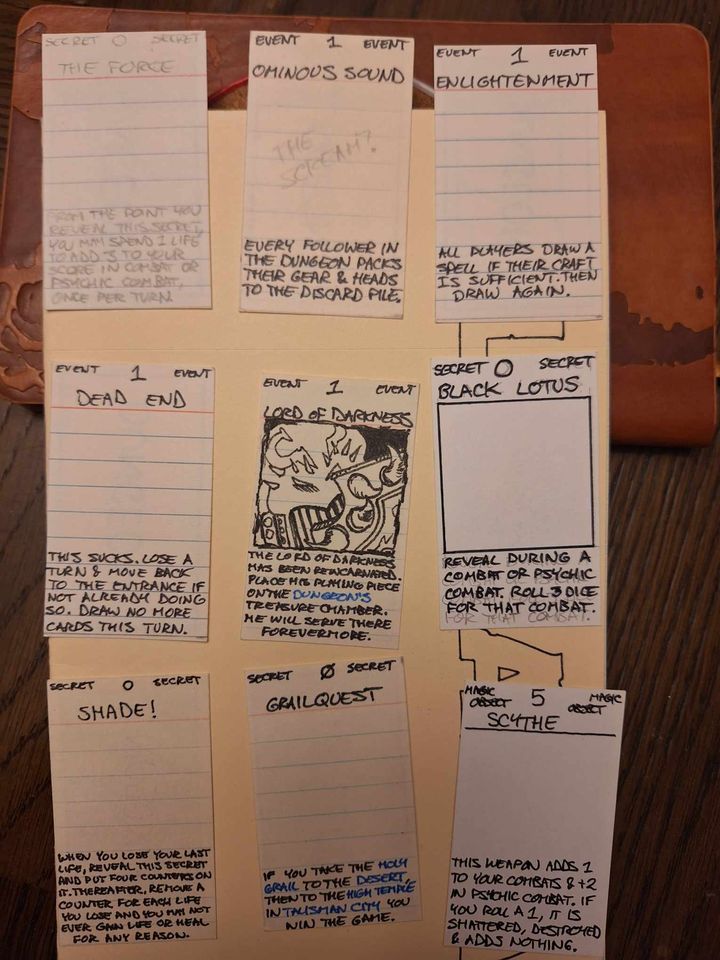 SECRET 0 SECRET
THE FORCE
FROM THE POINT YOU
REVEAL THIS SECRET,
YOU MAY SPEND 1 LIFE
TO ADD 3 TO YOUR
SCORE IN COMBAT OR
PSYCHIC COMBAT,
ONCE PER TURN.
EVENT 1 EVENT
OMINOUS SOUND
THE
SCREAM?
EVERY FOLLOWER IN
THE DUNGEON PACKS
THEIR GEAR & HEADS
TO THE DISCARD PILE.
EVENT 1 EVENT
ENLIGHTENMENT
ALL PLAYERS DRAW A
SPELL IF THEIR CRAFT
IS SUFFICIENT. THEN
DRAW AGAIN.
EVENT 1 EVENT
DEAD END
THIS SUCKS. LOSE A
TURN & MOVE BACK
TO THE ENTRANCE IF
NOT ALREADY DOING
SO. DRAW NO MORE
CARDS THIS TURN.
EVENT 1 EVENT
LORD OF DARKNESS
THE LORD OF DARKNESS
HAS BEEN REINCARNATED.
PLACE HIS PLAYING PIECE
ON THE DUNGEON'S
TREASURE CHAMBER.
HE WILL SERVE THERE
FOREVERMORE.
SECRET 0 SECRET
BLACK LOTUS
REVEAL DURING A
COMBAT OR PSYCHIC
COMBAT. ROLL 3 DICE
FOR THAT COMBAT.
FOR THAT COMBAT.
SECRET 0 SECRET
SHADE!
WHEN YOU LOSE YOUR LAST
LIFE, REVEAL THIS SECRET
AND PUT FOUR COUNTERS ON
IT. THEREAFTER, REMOVE A
COUNTER FOR EACH LIFE
YOU LOSE AND YOU MAY NOT
EVER GAIN LIFE OR HEAL
FOR ANY REASON.
SECRET Ø SECRET
GRAILQUEST
IF YOU TAKE THE HOLY
GRAIL TO THE DESERT,
THEN TO THE HIGH TEMPLE
IN TALISMAN CITY YOU
WIN THE GAME.
MAGIC OBJECT 5 MAGIC OBJECT
SCYTHE
THIS WEAPON ADDS 1
TO YOUR COMBATS & +2
IN PSYCHIC COMBAT. IF
YOU ROLL A 1, IT IS
SHATTERED, DESTROYED
& ADDS NOTHING.